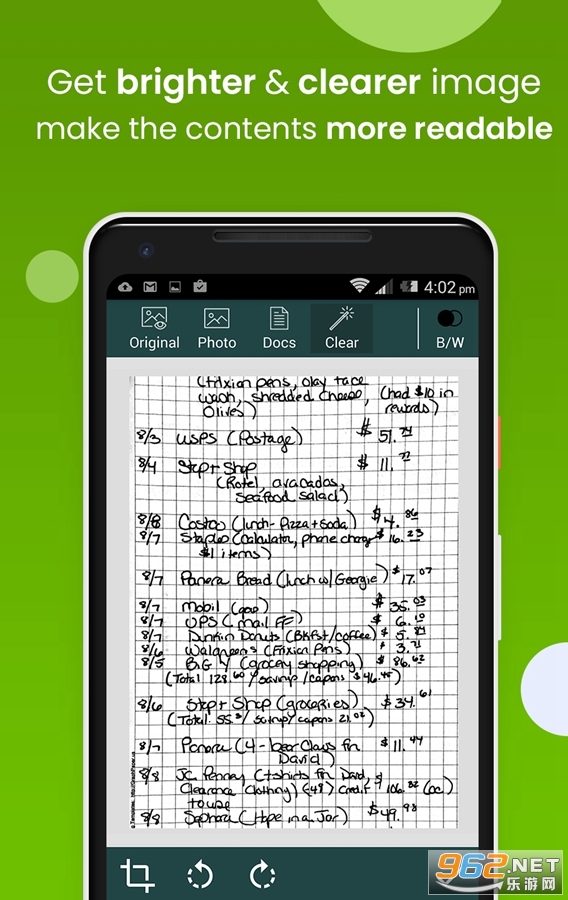 Get brighter & clearer image
make the contents more readable
4:02 pm
Original Photo Docs Clear B/W
(Frixion pens, olay face
wash, shredded cheese, (had $10 in
Olives) rewards)
8/3 USPS (Postage) $51.74
8/4 Stop + Shop $11.77
(Rotel, avacados,
seafood salad)
8/8 Costco (lunch- Pizza + Soda) $14.86
8/7 Staples (Calculator, phone charger $16.23
$1 items)
8/7 Panera Bread (lunch w/ Georgie) $17.07
8/7 Mobil (gas) $35.03
8/7 UPS (mail FF) $6.10
8/7 Dunkin Donuts (Bkfst/coffee) $5.84
8/6 Walgreens (Frixion Pens) $3.71
8/5 Big Y (grocery shopping) $86.62
(Total 128.60 / savings / coupons $46.45)
8/6 Stop + Shop (groceries) $34.61
(Total 55 / savings/ coupons 21.02)
8/7 Panera (4 - bear claws for $11.44
David)
8/8 JC Penney (tshirts for David, $
Clearance Clothing) (-$48) credit 106.82 (cc)
to use
8/8 Sephora (Hope in a Jar) $49.98
962.NET
乐游网